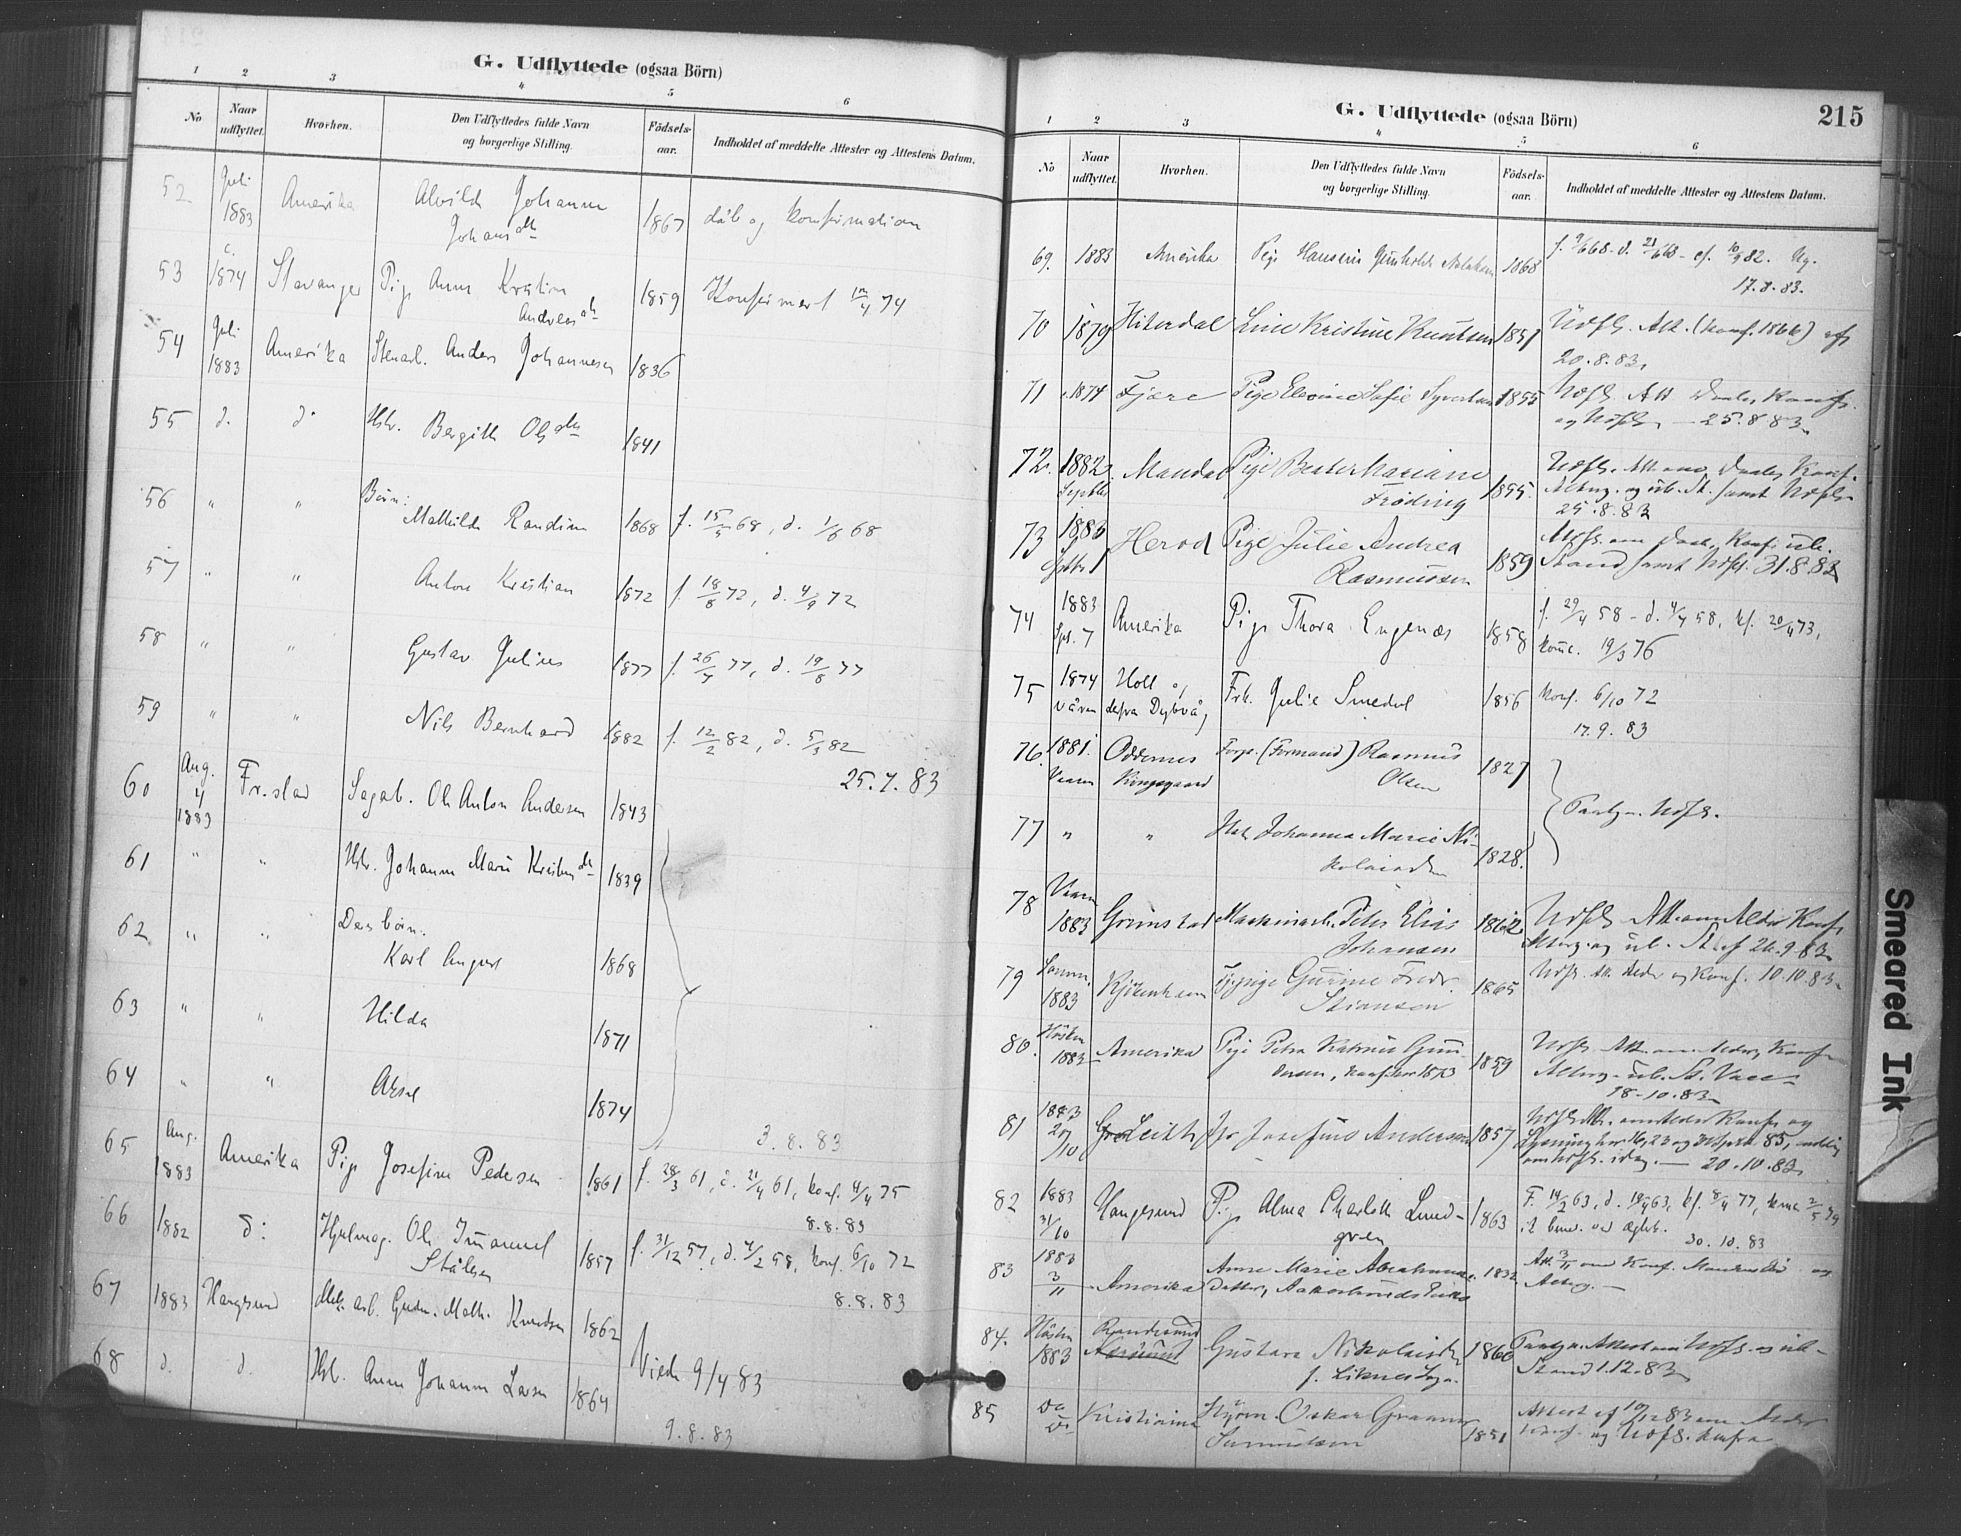 G. Udflyttede (ogsaa Börn)
1 2 3 4 5 6
No
Naar udflyttet.
Hvorhen.
Den Udflyttedes fulde Navn og borgerlige Stilling.
Födsels-aar.
Indholdet af meddelte Attester og Attestens Datum.
52 Juli 1883 Amerika Alvilde Johanne Johansdtr 1867 dåb og konfirmation
53 1874 Stavanger Pige Anne Kristine Andreasdtr 1859 Konfirmert 12/4 74
54 Juli 1883 Amerika Stenarb. Anders Johannesen 1836
55 d. do Hstr. Bergitte Olsdtr 1841
56 " " Børn: Mathilde Randine 1868 f. 15/5 68, d. 1/6 68
57 " " Anton Kristian 1872 f. 18/8 72, d. 4/9 72
58 " " Gustav Julius 1877 f. 26/7 77, d. 19/8 77
59 " " Nils Bernhard 1882 f. 12/2 82, d. 5/3 82
25.7.83
60 Aug. 4 1883 Fr.stad Sagarb. Ole Anton Andersen 1843
61 " " Hstr. Johanne Marie 1839
62 " " Deres børn: Karl August 1868
63 " " Hilda 1871
64 " " Aksel 1874
3.8.83
65 Aug. 1883 Amerika Pige Josefine Pedersen 1861 f. 28/3 61, d. 21/4 61, konf. 4/4 75
8.8.83
66 1882 do: Hjulmag. Ole Immanuel Ståhlsen 1857 f. 31/12 57, d. 7/2 58, konf. 6/10 72
8.8.83
67 1883 Haugesund Mek. arb. Gudm. Math. Knudsen 1862
68 d. d. Hstr. Anne Johanne Larsen 1864 Viede 9/4 83
9.8.83
G. Udflyttede (ogsaa Börn) 215
1 2 3 4 5 6
No
Naar udflyttet.
Hvorhen.
Den Udflyttedes fulde Navn og borgerlige Stilling.
Födsels-aar.
Indholdet af meddelte Attester og Attestens Datum.
69. 1883 Amerika Pige Hansine Gunhilde 1868
17.8.83.
70 1879 Hiterdal Line Kristine Knutsen 1851 Udfl. Att. (konf. 1866) af
20.8.83.
71 1874 Fjære Pige Elevine Sofie Syvertsen 1855 Udfl. Att Daab, Konf.
og Udfl. — 25.8.83.
72. 1882 Septbr. Mandal Pige Berte Mariane Frøding 1855. Udfl. Att. om Daab, Konf.
Alterg. og ub. St. samt Udfl.
25.8.83
73 1883 Septbr 1 Herod Pige Julie Andrea Rasmussen 1859 Attest. om Daab, Konf. ub.
Stand samt Udfl. 31.8.83
74 1883 Spt. 7 Amerika Pige Thora Engenæs 1858 d. 4/7 58, kf. 20/4 73,
kom. 19/3 76
75 1874 våren Holt o, derfra Dybvåg Frk. Julie Smedal 1856 konf. 6/10 72
17.9.83
76. 1881. Vaaren Oddernes Kongsgaard Forp. (Formand) Rasmus Olsen 1827
Paategn. Udfl.
77 " " Hstr Johanna Marie Nikolaisdtr 1828.
78 Vaaren 1883 Grimstad Maskinarb. Peter Elias Johansen 1862 Udfl. Att. om Alder Konf.
Alterg. og ub. St. af 26.9.83
79 Somm. 1883 Kjøbenhavn Tjpige Gurine Fredr. Stiansen 1865 Udfl. Att. Alder og Konf. 10.10.83
80. Høsten 1883 Amerika Pige Petra Katrine Gundersen, konfirm 1873 1859 Udfl. Att. om Alder, Konf.
Alterg. ub. St. Vacc.
18-10.83
81 1883 20/10 Leith Josefine Andersen 1857 Udfl. Att. om Alder Konf. og
20.10.83
82 1883 31/10 Haugesund Pige Alma Charlotte Lundgren 1863 F. 14/2 63, d. 19/4 63, kf. 8/4 77, kom. 2/5 79
30.10.83
83 1883 3/11 Amerika Anne Marie Abrahams Datter, 1832 Att. 3/11 om Konf.
Alterg. —
84. Høsten 1883 Randesund Gustava Nikolaisdtr 1860 Paategn. Attest om Udfl. og ub-
Stand 1.12.83
85 Do Do Kristiania Styrm. Oskar Graaner 1851 Attest af 10/12 83 om Alder
Konf. og Udfl. herfra
Smeared Ink